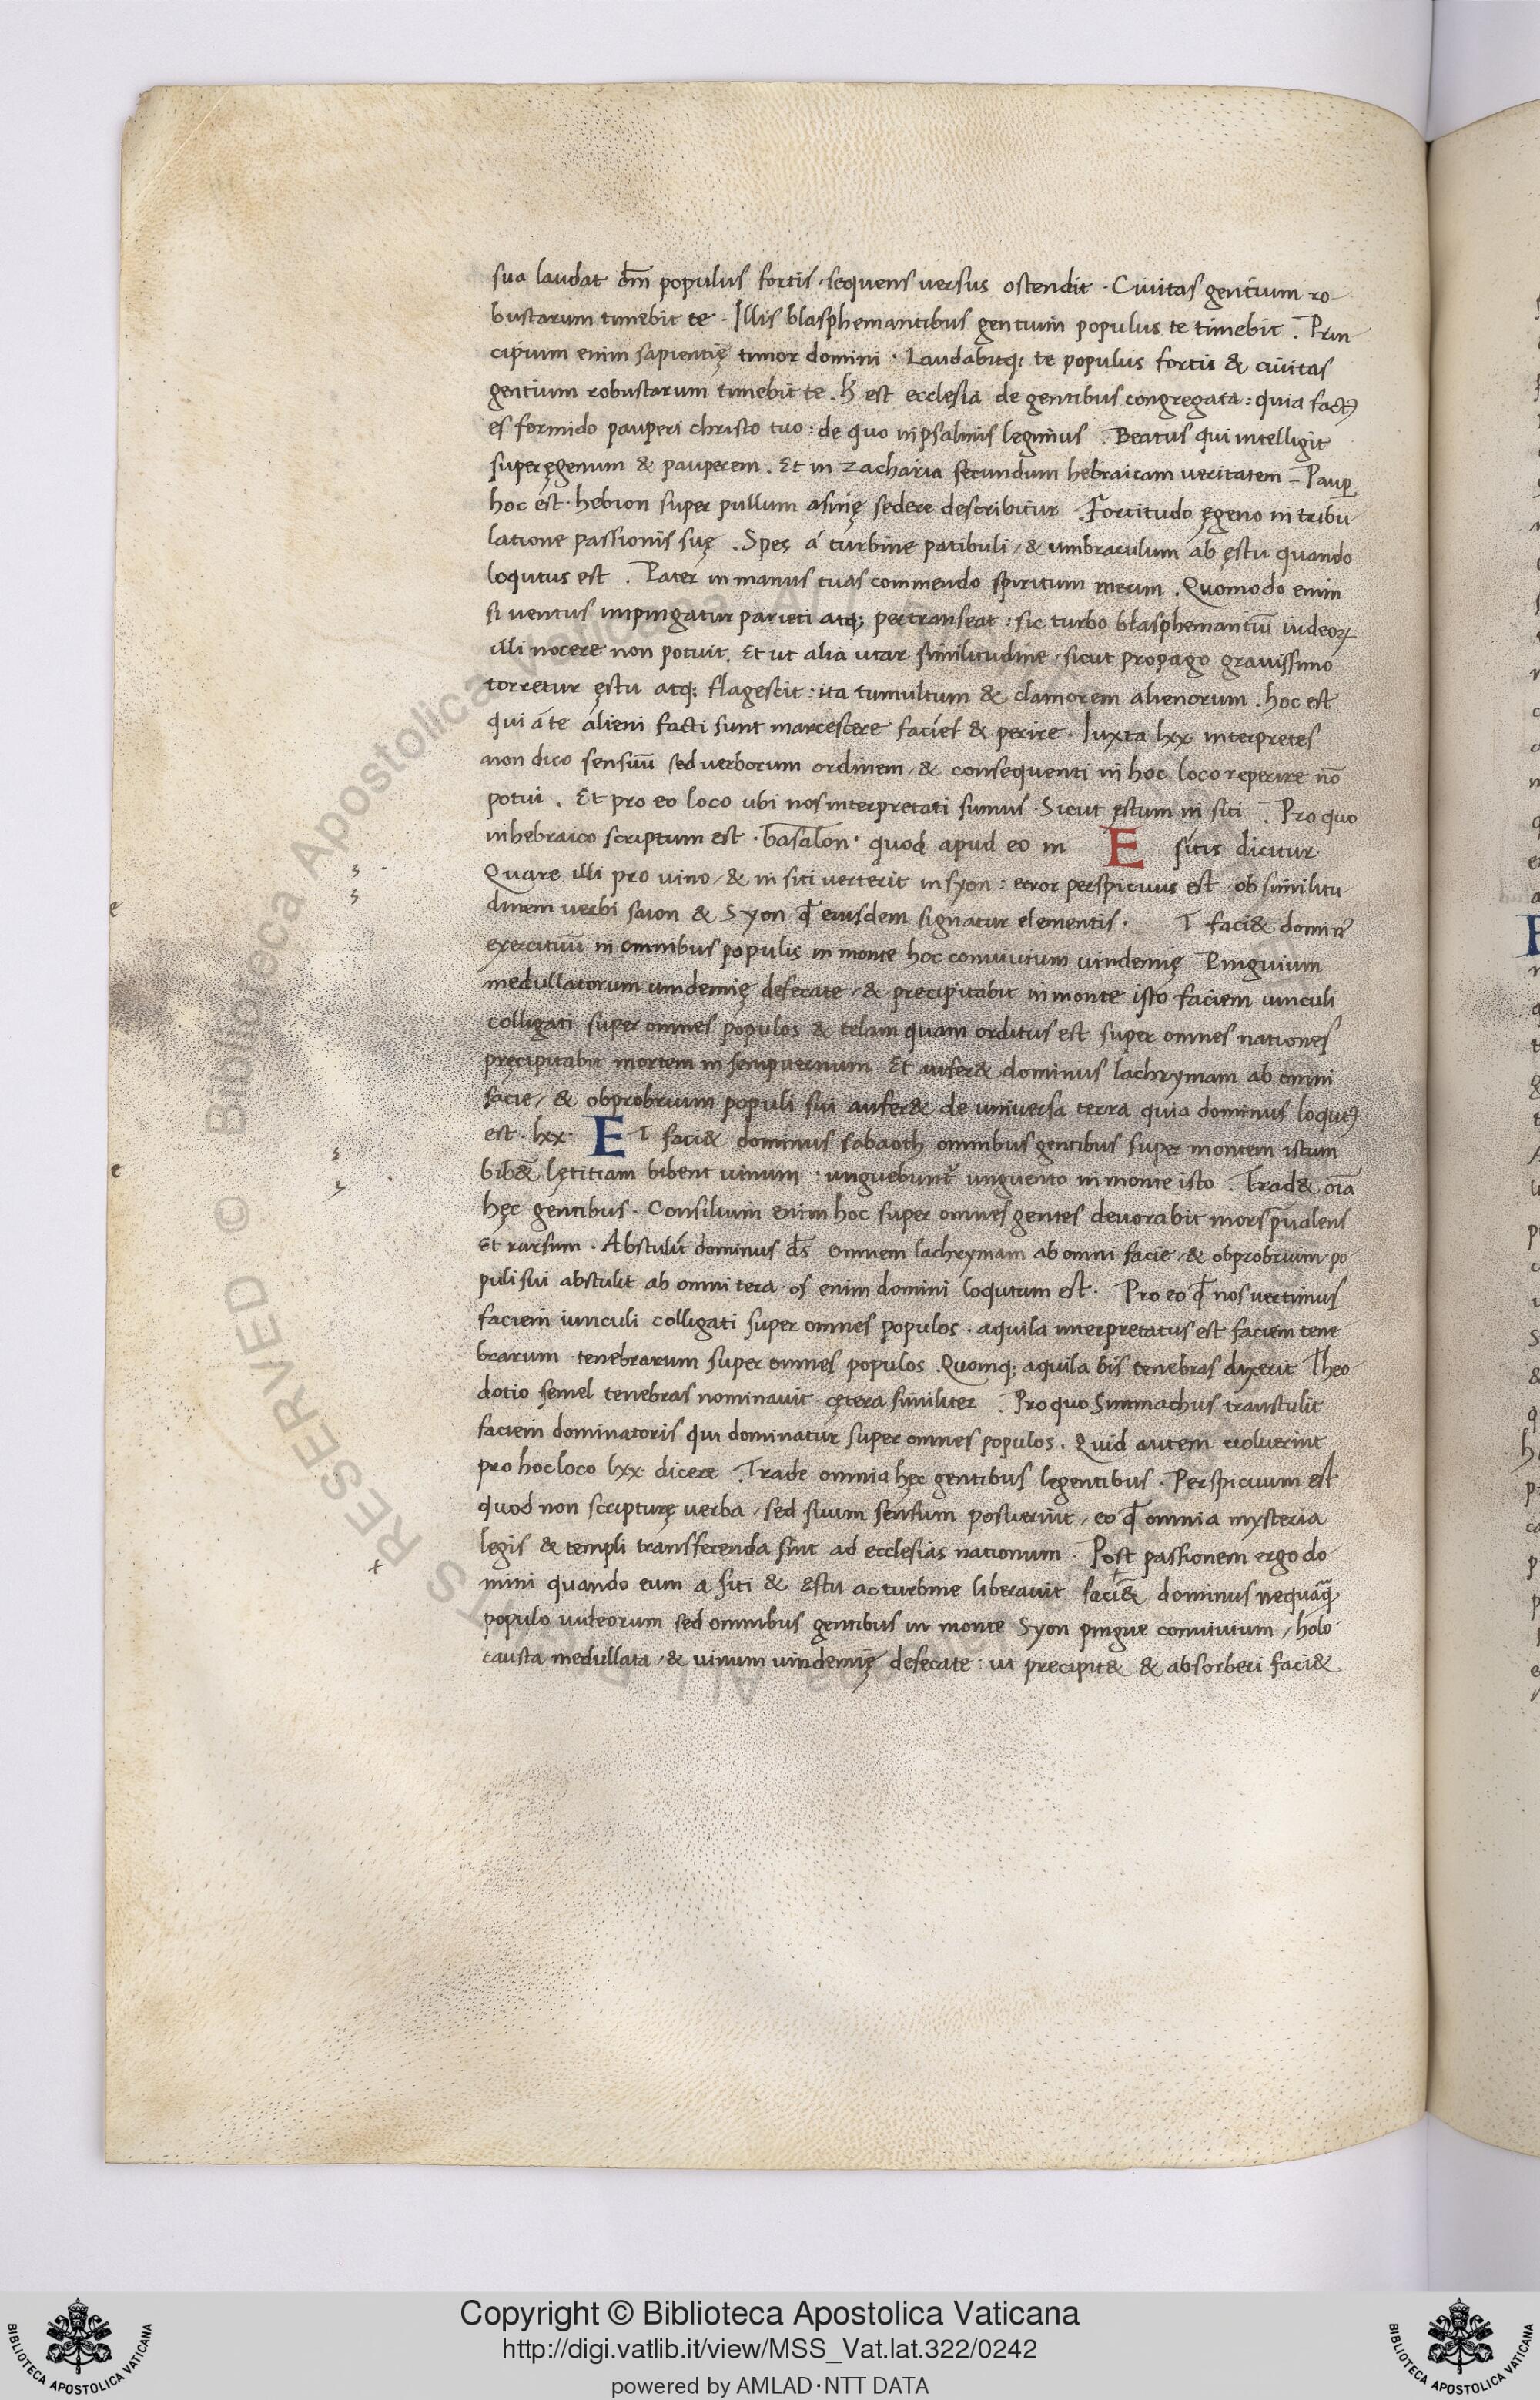 sua laudat dm̄ populus fortis · sequens versus ostendit · Civitas gentium ro
bustarum timebit te · Illis blasphemantibus gentium populus te timebit . Prin
cipium enim sapientię timor domini · Laudabitq; te populus fortis & civitas
gentium robustarum timebit te . h̄ est ecclesia de gentibus congregata : quia factꝰ
es formido pauperi christo tuo : de quo in psalmis legimus . Beatus qui intelligit
super ęgenum & pauperem . Et in Zacharia secundum hebraicam veritatem – Paup̱
hoc est · hebion super pullum asinę sedere describitur . Fortitudo ęgeno in tribu
latione passionis suę . Spes á turbine patibuli / & umbraculum ab ęstu quando
loqutus est . Pater in manus tuas commendo spiritum meum . Quomodo enim
si ventus impingatur parieti atq; pertranseat : sic turbo blasphemantiū iudeoꝝ
illi nocere non potuit . Et ut alia utar similitudine / sicut propago gravissimo
torretur ęstu atq; flagescit : ita tumultum & clamorem alienorum . hoc est
qui á te alieni facti sunt marcescere facies & perire · Iuxta lxx interpretes
non dico sensuū sed verborum ordinem / & consequenti in hoc loco reperire nō
potui . Et pro eo loco ubi nos interpretati sumus · Sicut ęstum in siti . Pro quo
in hebraico scriptum est · basaion · quod apud eo in E sitis dicitur ·
Quare illi pro vino / & in siti verterit in syon : error perspicuus est / ob similitu
dinem verbi saion & Syon ꝙ eiusdem signatur elementis · T faci& dominꝰ
exercituū in omnibus populis in monte hoc convivium vindemię Pinguium
medullatorum vindemię defecate / & precipitabit in monte isto faciem vinculi
colligati super omnes populos & telam quam orditus est super omnes nationes
pręcipitabit mortem in sempiternum Et aufer& dominus lachrymam ab omni
facie / & obprobrium populi sui aufer& de universa terra quia dominus loqutꝰ
est · lxx · E T faci& dominus sabaoth omnibus gentibus super montem istum
bib& lętitiam bibent vinum : unguebunt᷑ unguento in monte isto . Trad& oīa
hęc gentibus · Consilium enim hoc super omnes gentes devorabit mors p̄valens
Et rursum · Abstulit dominus ds̄ omnem lachrymam ab omni facie / & obprobrium / po
puli sui abstulit ab omni tera · os enim domini loqutum est · Pro eo ꝙ nos vertimus
faciem vinculi colligati super omnes populos · aquila interpretatus est faciem tene
brarum · tenebrarum super omnes populos . Quomq; aquila bis tenebras dixerit Theo
dotio semel tenebras nominavit · cętera similiter . Pro quo Simmachus transtulit
faciem dominatoris qui dominatur super omnes populos . Quid autem voluerint
pro hoc loco lxx dicere . Trade omnia hęc gentibus legentibus · Perspicuum est
quod non scripturę verba / sed suum sensum posuerint / eo ꝙ omnia mysteria
legis & templi transferenda sint ad ecclesias nationum · Post passionem ergo do
mini quando eum a siti & ęstu ac turbine liberavit faci& dominus nequaꝗ̄
populo iudeorum sed omnibus gentibus in monte Syon pingue convivium / holo
causta medullata / & vinum vindemię defecate : ut precipit& & absorberi faci&
Copyright © Biblioteca Apostolica Vaticana
http://digi.vatlib.it/view/MSS_Vat.lat.322/0242
powered by AMLAD·NTT DATA
BIBLIOTECA APOSTOLICA VATICANA
BIBLIOTECA APOSTOLICA VATICANA